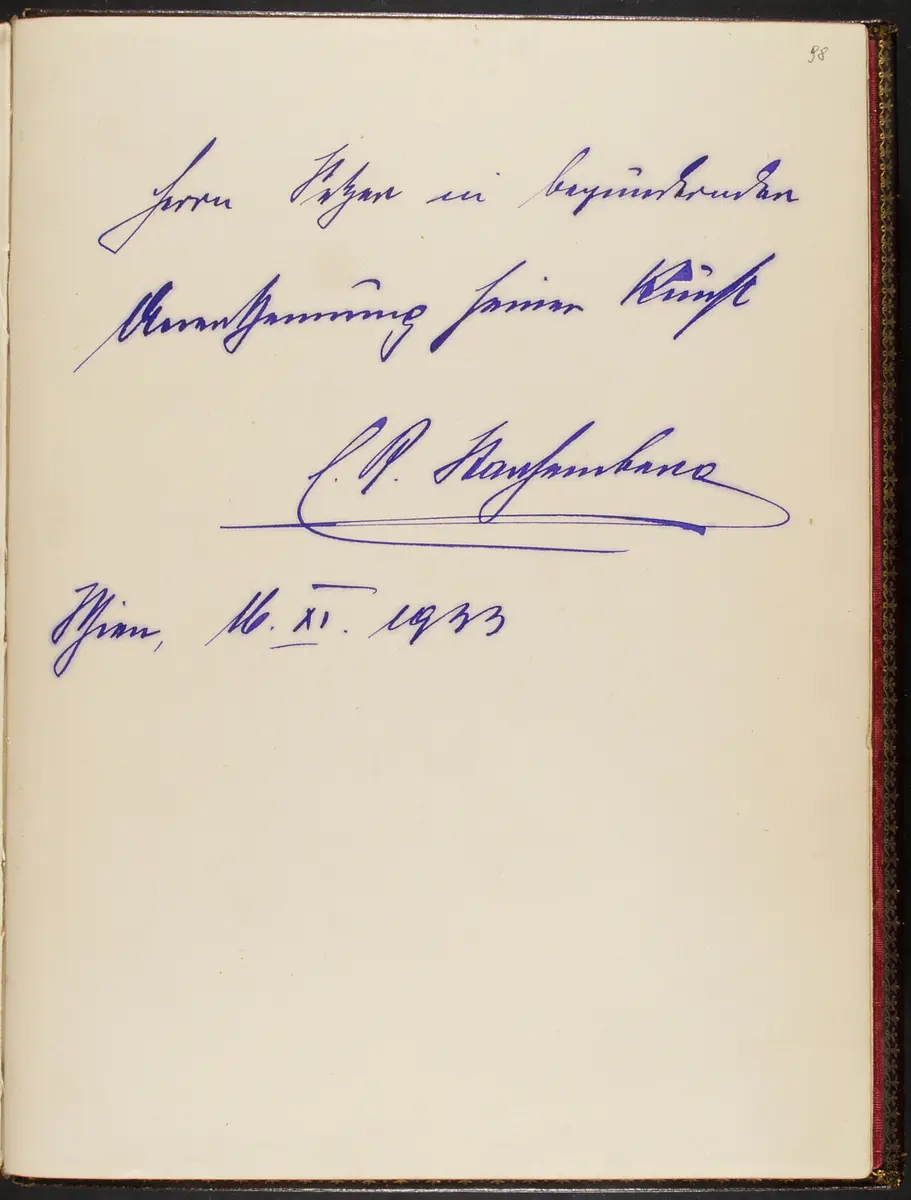 98
Herrn Setzer in bewundernder
Anerkennung seiner Kunst
E. R. Starhemberg
Wien, 16. XI. 1933